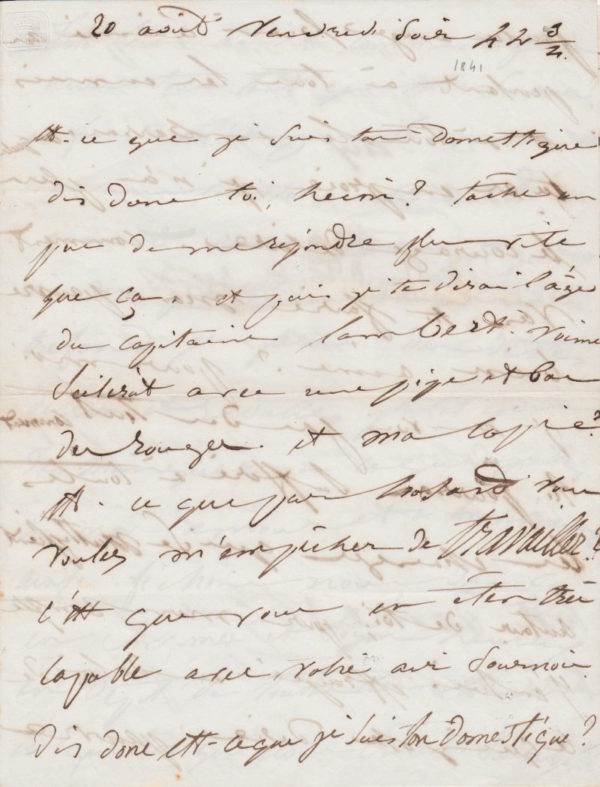 20 août Vendredi soir
1841
Est-ce que je suis ton domestique
dis donc toi, hein? tâche un
peu de me répondre plus vite
que ça, et puis je te dirai l'âge
du capitaine Lambert.
avec une pipe et bou
du rouge. et ma copie?
Est-ce que par hasard vous
voulez m'empêcher de travailler?
C'est que vous en êtes très
capable avec votre air sournois
dis donc est-ce que je suis ton domestique?